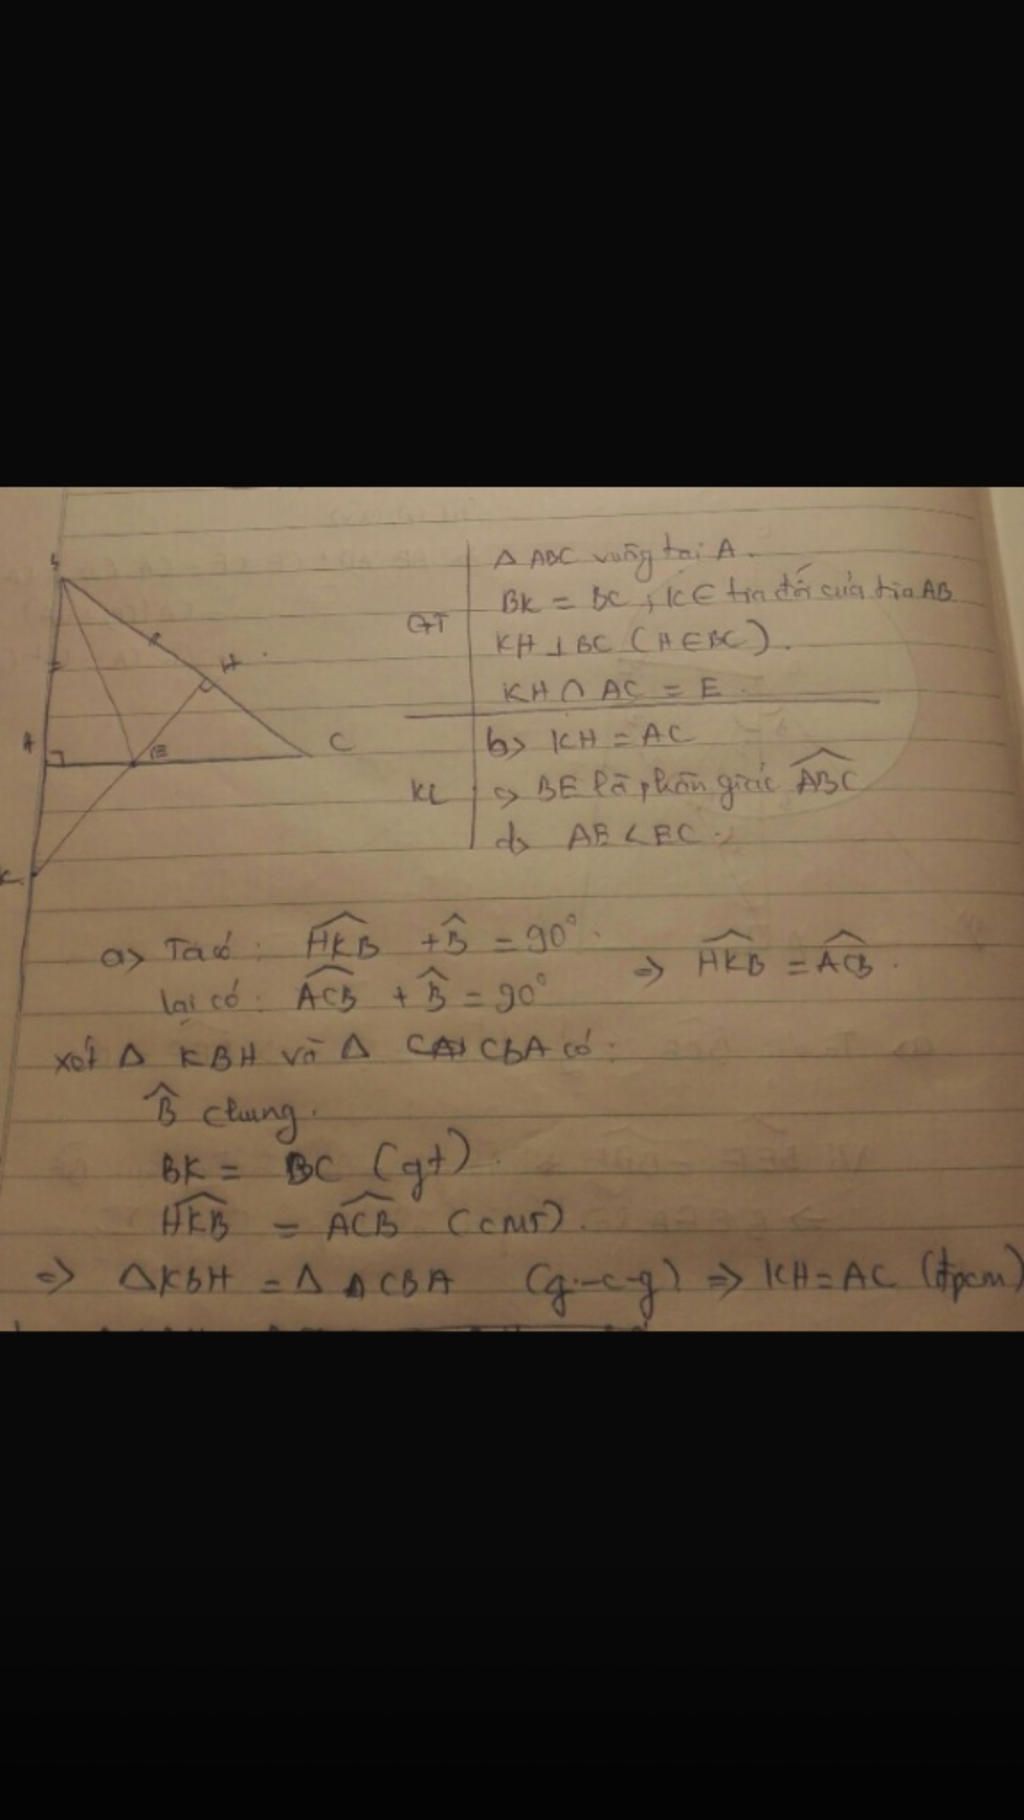 B
H
A
E
C
K
GT
Δ ABC vuông tại A.
BK = BC, K ∈ tia đối của tia AB
KH ⊥ BC (H ∈ BC).
KH ∩ AC = E
KL
b> KH = AC
c> BE là phân giác \widehat{ABC}
d> AE < EC.
a> Ta có: \widehat{HKB} + \widehat{B} = 90°. ⇒ \widehat{HKB} = \widehat{ACB}.
lại có: \widehat{ACB} + \widehat{B} = 90°
xét Δ KBH và Δ CBA có:
\widehat{B} chung.
BK = BC (gt).
\widehat{HKB} = \widehat{ACB} (cmt).
⇒ ΔKBH = Δ CBA (g-c-g) ⇒ KH = AC (đpcm)